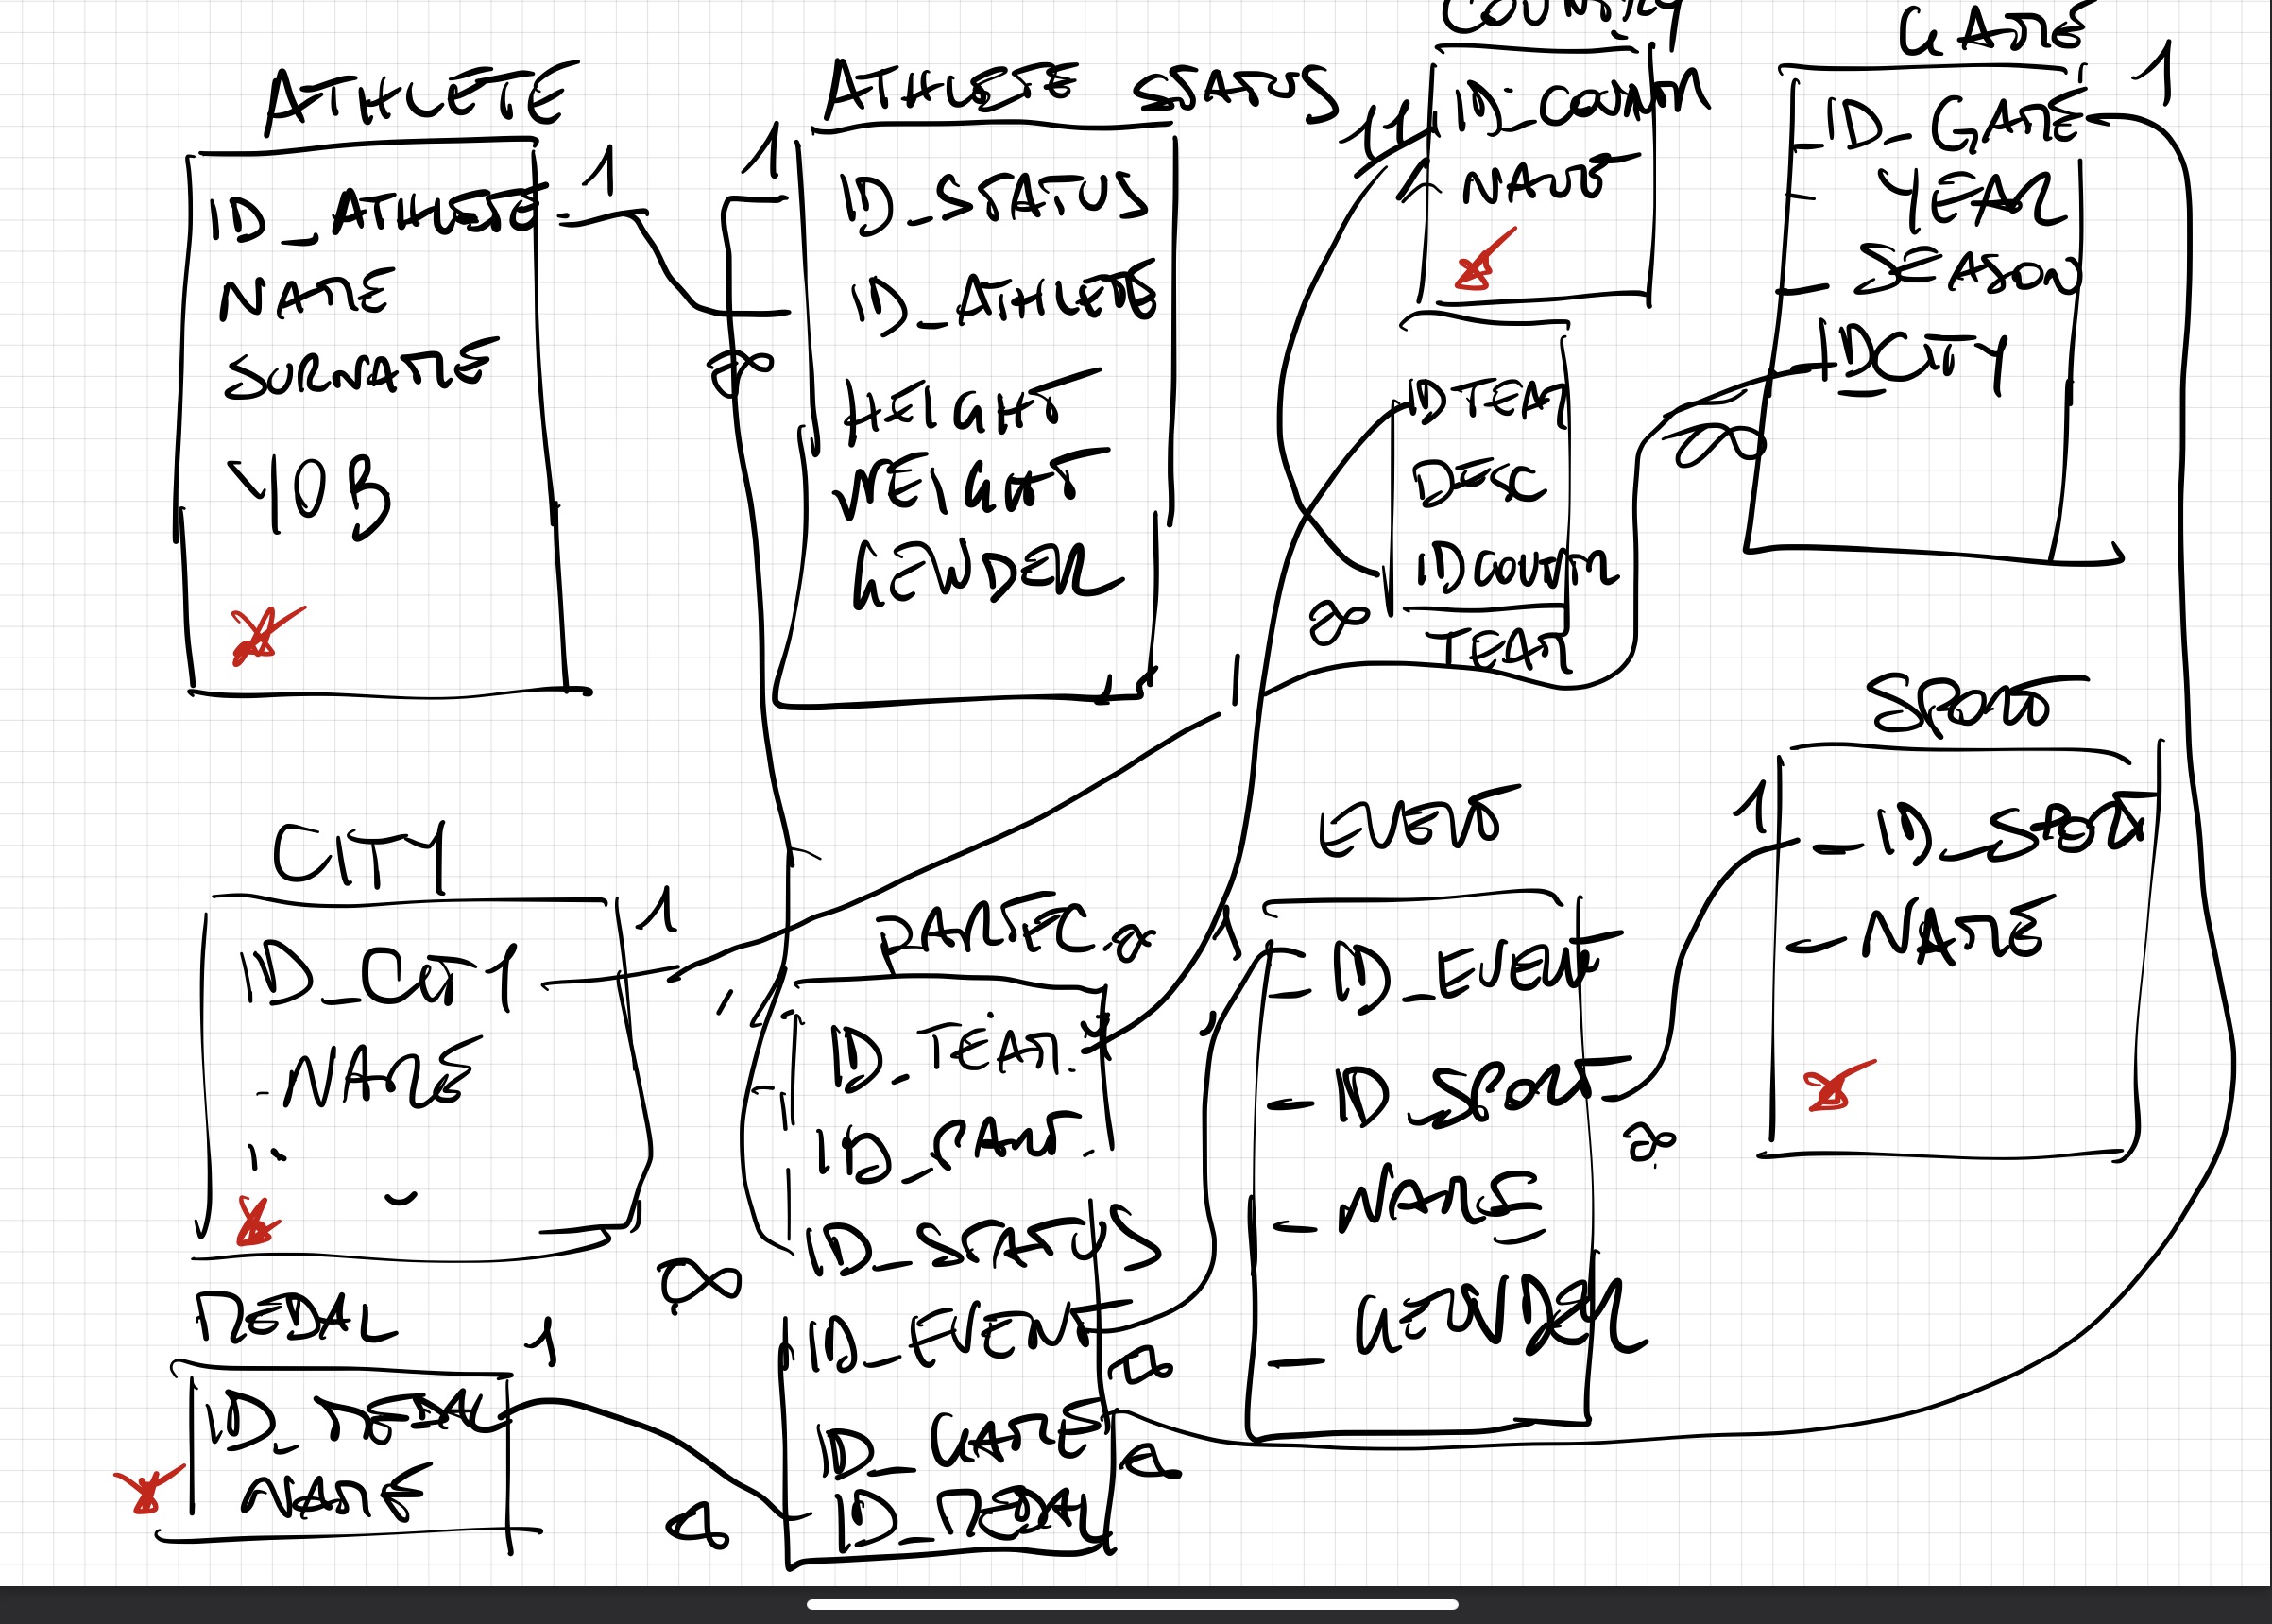 ATHLETE
ID_ATHLETE
NAME
SURNAME
YOB
1
ATHLETE STATUS
1
ID_STATUS
ID_ATHLETE
HEIGHT
WEIGHT
GENDER
∞
COUNTRY
1
ID_COUNTRY
NAME
ID TEAM
DESC
ID COUNTRY
TEAM
∞
1
GAME
1
ID_GAME
YEAR
SEASON
IDCITY
∞
CITY
1
ID_CITY
- NAME
PARTEC.
∞
ID_TEAM
ID_PART.
ID_STATUS
ID_EVENT
ID_GAME
ID_MEDAL
∞
∞
∞
∞
EVENT
1
- ID_EVENT
- ID_SPORT
- NAME
- GENDER
∞
SPORT
1
- ID_SPORT
- NAME
MEDAL
1
ID_MEDAL
NAME